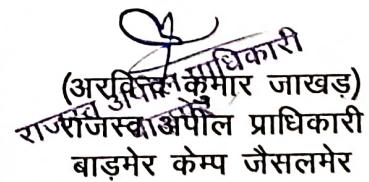 (अरविन्द कुमार जाखड़)
राजस्व अपील प्राधिकारी
बाड़मेर केम्प जैसलमेर
राजस्व अपील प्राधिकारी